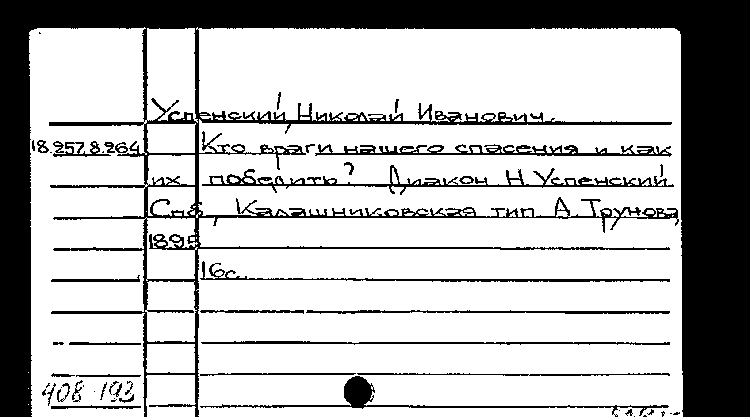 Успенский, Николай Иванович.
18.257.8.264 Кто враги нашего спасения и как
их победить? Диакон Н. Успенский.
Спб., Калашниковская тип. А. Трунова,
1895
16с.
408 193